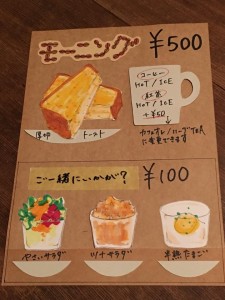 モーニング ¥500
コーヒー
HOT / ICE
紅茶
HOT / ICE
+¥50
カフェオレ/ハーブTEA
に変更できます
厚切 トースト
ご一緒にいかが? ¥100
やさいサラダ ツナサラダ 半熟たまご